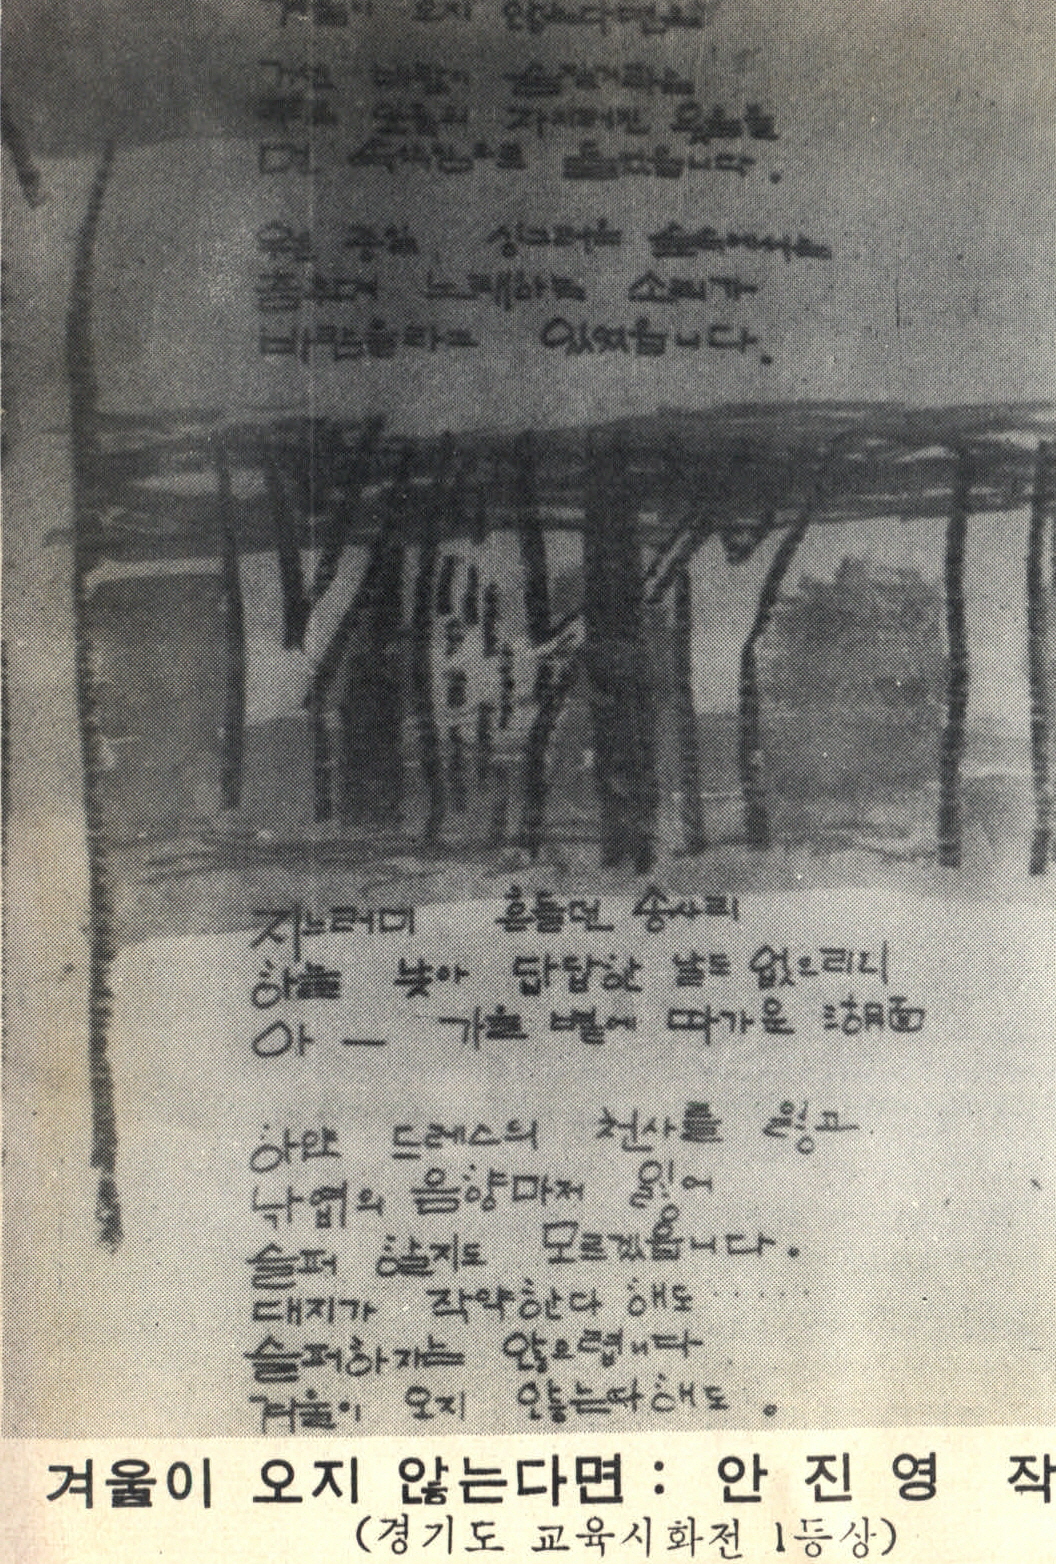 겨울이 오지 않는다면은
바람이
먼 속삭임으로 들렸읍니다.
싱그러운 숲속에서는
노래하던 소리가
바람을타고 있었읍니다.
지느러미 흔들던 송사리
하늘 낮아 답답한 날도 없으리니
아 — 가을 볕에 따가운 湖面
하얀 드레스의 천사를 잃고
낙엽의 음향마저 잃어
슬퍼 할지도 모르겠읍니다.
대지가 작약한다 해도 ·····
슬퍼하지는 않으렵니다
겨울이 오지 않는다해도.
겨울이 오지 않는다면: 안 진 영 작
(경기도 교육시화전 1등상)